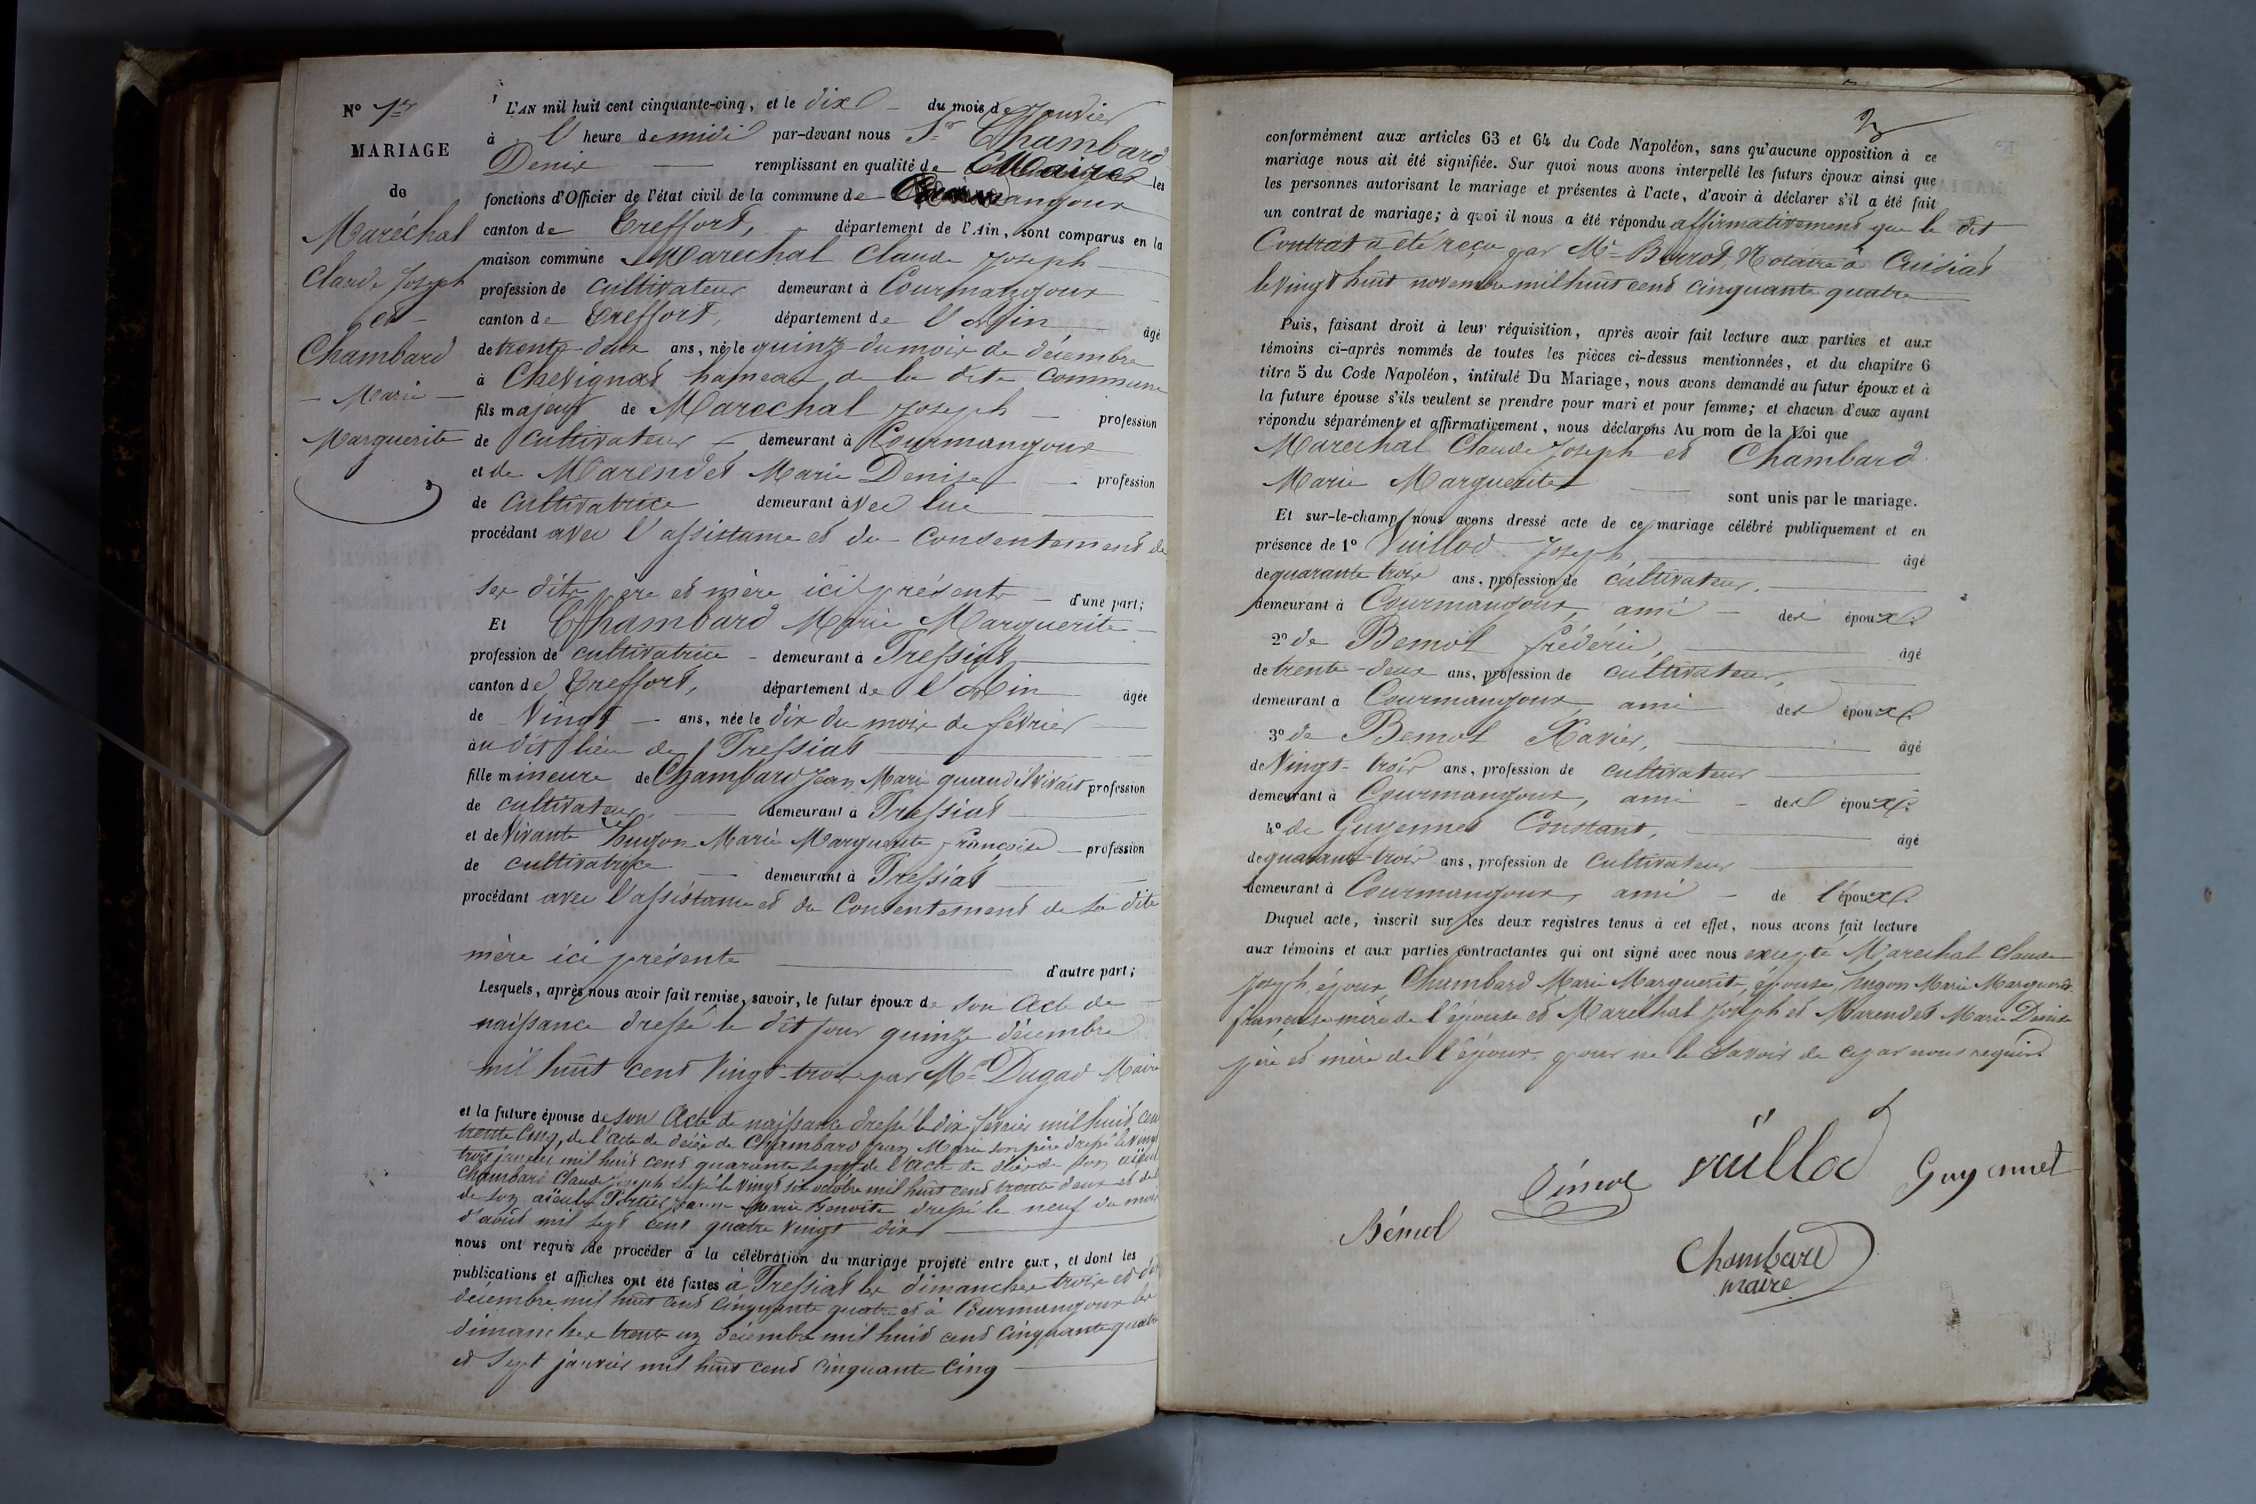 N° 1er
MARIAGE
de
Maréchal
Claude Joseph
et
Chambard
Marie
Marguerite
L'AN mil huit cent cinquante-cinq, et le dix du mois de Janvier
à l'heure de midi par-devant nous Sr Chambard
Denis remplissant en qualité de Maire les
fonctions d'Officier de l'état civil de la commune de Courmangoux
canton de Treffort, département de l'Ain, sont comparus en la
maison commune Marechal Claude Joseph
profession de cultivateur demeurant à Courmangoux
canton de Treffort, département de l'Ain âgé
de trente-deux ans, né le quinze du mois de décembre
à Chevignat hameau de la dite commune
fils majeur de Marechal Joseph profession
de cultivateur demeurant à Courmangoux
et de Marendet Marie Denise profession
de cultivatrice demeurant avec lui
procédant avec l'assistance et du consentement de
ses dits père et mère ici présents d'une part;
Et Chambard Marie Marguerite
profession de cultivatrice demeurant à Pressiat
canton de Treffort, département de l'Ain âgée
de Vingt ans, née le dix du mois de février
au dit lieu de Pressiat
fille mineure de Chambard Jean Marie quand il vivait profession
de cultivateur demeurant à Pressiat
et de Vivante Hugon Marie Marguerite Françoise profession
de cultivatrice demeurant à Pressiat
procédant avec l'assistance et du Consentement de sa dite
mère ici présente d'autre part;
Lesquels, après nous avoir fait remise, savoir, le futur époux de son Acte de
naissance dressé le dit jour quinze décembre
mil huit cent Vingt-trois par Mr Dugad Maire
et la future épouse de son Acte de naissance dressé le dix février mil huit cent
trente Cinq, de l'acte de décès de Chambard Jean Marie son père dressé le vingt
trois janvier mil huit cent quarante sept de l'acte de décès de son aïeul
Chambard Claude Joseph dressé le vingt six octobre mil huit cent trente deux et de
de son aïeule Jeanne Marie Benoite dressé le neuf du mois
d'août mil sept cent quatre Vingt dix
nous ont requis de procéder à la célébration du mariage projeté entre eux, et dont les
publications et affiches ont été faites à Pressiat les dimanches trois et dix
décembre mil huit cent cinquante quatre et à Courmangoux les
dimanches trente un décembre mil huit cent cinquante quatre
et sept janvier mil huit cent cinquante cinq
2
conformément aux articles 63 et 64 du Code Napoléon, sans qu'aucune opposition à ce
mariage nous ait été signifiée. Sur quoi nous avons interpellé les futurs époux ainsi que
les personnes autorisant le mariage et présentes à l'acte, d'avoir à déclarer s'il a été fait
un contrat de mariage; à quoi il nous a été répondu affirmativement que le dit
Contrat a été reçu par Mr Notaire à Cuisiat
le vingt huit novembre mil huit cent cinquante quatre
Puis, faisant droit à leur réquisition, après avoir fait lecture aux parties et aux
témoins ci-après nommés de toutes les pièces ci-dessus mentionnées, et du chapitre 6
titre 5 du Code Napoléon, intitulé Du Mariage, nous avons demandé au futur époux et à
la future épouse s'ils veulent se prendre pour mari et pour femme; et chacun d'eux ayant
répondu séparément et affirmativement, nous déclarons Au nom de la Loi que
Marechal Claude Joseph et Chambard
Marie Marguerite sont unis par le mariage.
Et sur-le-champ nous avons dressé acte de ce mariage célébré publiquement et en
présence de 1° Vuillod Joseph âgé
de quarante trois ans, profession de cultivateur,
demeurant à Courmangoux, ami des époux.
2° de Bemol fréderic, âgé
de trente-deux ans, profession de cultivateur,
demeurant à Courmangoux, ami des époux.
3° de Bemol Xavier, âgé
de Vingt-trois ans, profession de cultivateur
demeurant à Courmangoux, ami des époux.
4° de Guyennet Constant, âgé
de quarante-trois ans, profession de cultivateur
demeurant à Courmangoux, ami de l'époux.
Duquel acte, inscrit sur les deux registres tenus à cet effet, nous avons fait lecture
aux témoins et aux parties contractantes qui ont signé avec nous excepté Marechal Claude
Joseph, époux, Chambard Marie Marguerite, épouse, Hugon Marie Marguerite
françoise mère de l'épouse et Maréchal Joseph et Marendet Marie Denise
père et mère de l'époux pour ne le savoir de ce par nous requis
Bémol vüillod Guyennet
Bémol
Chambard
maire